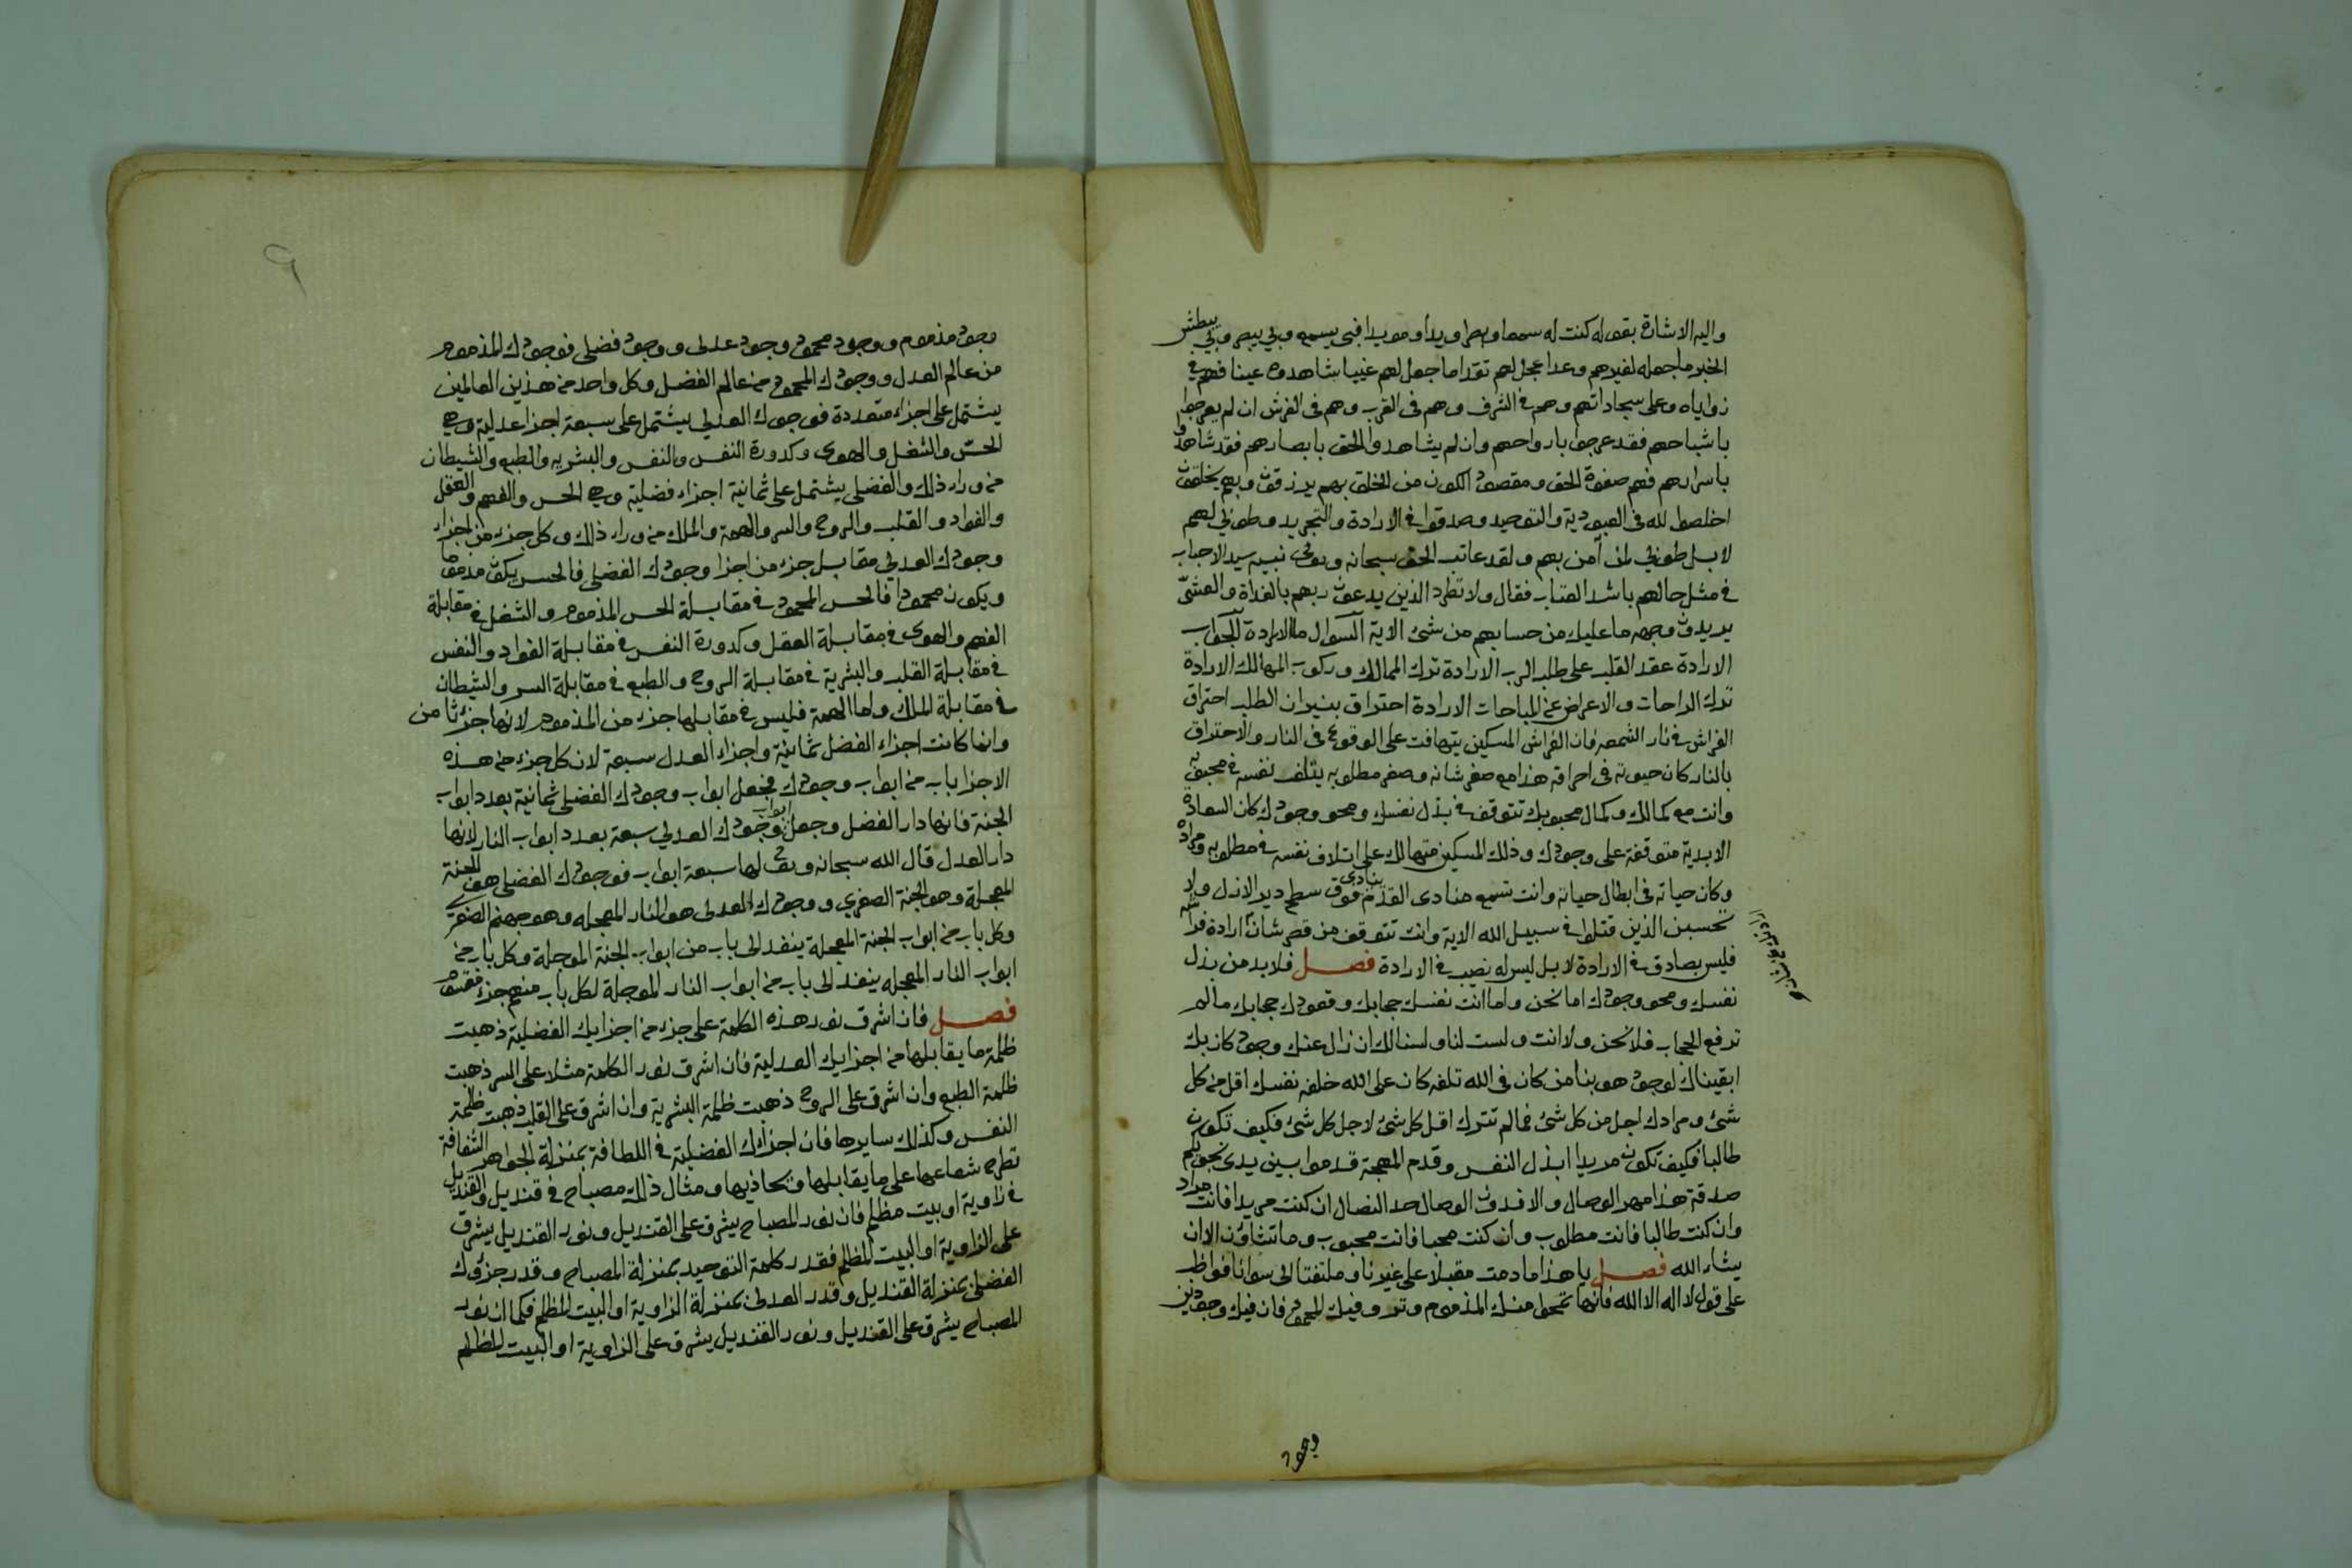 واليه الاشارة بقوله كنت له سمعا وبصرا ويدا ومويدا فبي يسمع وبي يبصر وبي يبطش
الخبر ما جعله لغيرهم وعدا عجل لهم نقدا ما جعل لهم غيبا شاهدوه عينا فهم في
زواياه وعلى سجاداتهم وهم في الشرف وهم في القرب وهم في الفرش ان لم يعرجوا
باشباحهم فقد عرجوا بارواحهم وان لم يشاهدوا الحق بابصارهم فقد شاهدوا
باسرارهم فهم صفوة الحق ومقصود الكون من الخلق بهم يرزقون وبهم يخلقون
اخلصوا لله في العبودية والتوحيد وصدقوا في الارادة والتجريد وطوبى لهم
لا بل طوبى لمن آمن بهم ولقد عاتب الحق سبحانه وتعالى نبيه سيد الاحباب
في مثل حالهم باشد العتاب فقال ولا تطرد الذين يدعون ربهم بالغداة والعشي
يريدون وجهه ما عليك من حسابهم من شئ الاية السوال ما الارادة الجواب
الارادة عقد القلب على طلب الرب الارادة ترك الممالك وركوب المهالك الارادة
ترك الراحات والاعراض عن المباحات الارادة احتراق بنيران الطلب احتراق
الفراش في نار الشمعه فان الفراش المسكين يتهافت على الوقوع في النار والاحتراق
بالنار كان حيوته في احراقه هذا مع صغر شانه وصغر مطلوبه يتلف نفسه في محبوبه
وانت مع كمالك وكمال محبوبك تتوقف في بذل نفسك ومحو وجودك كان السعادة
الابدية متوقفة على وجودك وذلك المسكين متهالك على اتلاف نفسه في مطلوبه ومراده
وكان حياته في ابطال حياته وانت تسمع منادى القدم ينادى فوق سطح دير الازل ولا
تحسبن الذين قتلوا في سبيل الله الاية وانت تتوقف من قصر شان ارادة فراشه
فليس بصادق في الارادة لا بل ليس له نصيب في الارادة فصل فلا بد من بذل
نفسك ومحو وجودك اما نحن واما انت نفسك حجابك وقعودك حجابك ما لم
ترفع الحجاب فلا نحن ولا انت ولست لنا ولسنا لك ان زال عنك وجود كان بك
ابقيناك لوجود هو بنا من كان في الله تلفه كان على الله خلفه نفسك اقل من كل
شئ ومرادك اجل من كل شئ فما لم تترك اقل كل شئ لاجل كل شئ فكيف تكون
طالبا فكيف تكون مريدا ابذل النفس وقدم المهجة قدموا بين يدى نجويكم
صدقة هذا مهر الوصال والا فدون الوصال حد النصال ان كنت مريدا فانت مراد
وان كنت طالبا فانت مطلوب وان كنت محبا فانت محبوب وما تشاؤن الا ان
يشاء الله فصل يا هذا ما دمت مقبلا على غيرنا وملتفتا الى سوانا فواظب
على قول لا اله الا الله فانها تمحوا منك المذموم وفيك المحمود فان فيك وجودين
وجود
وجود مذموم ووجود محمود وجود عدلى ووجود فضلى فوجودك المذموم
من عالم العدل ووجودك المحمود من عالم الفضل وكل واحد من هذين العالمين
يشتمل على اجزاء متعددة فوجودك العدلي يشتمل على سبعة اجزا عدلية وهي
الحس والشغل والهوى وكدورة النفس والنفس والبشرية والطبع والشيطان
من وراء ذلك والفضلى يشتمل على ثمانية اجزاء فضلية وهي الحس والفهم والعقل
والفواد والقلب والروح والسر والهمة والملك من وراء ذلك وكل جزء من اجزاء
وجودك العدلي مقابل جزء من اجزا وجودك الفضلى فالحس يكون مذموما
ويكون محمودا فالحس المحمود في مقابلة الحس المذموم والشغل في مقابلة
الفهم والهوى في مقابلة العقل وكدورة النفس في مقابلة الفواد والنفس
في مقابلة القلب والبشرية في مقابلة الروح والطبع في مقابلة السر والشيطان
في مقابلة الملك واما الهمة فليس في مقابلها جزء من المذموم لانها جزء ثامن
وانما كانت اجزاء الفضل ثمانية واجزاء العدل سبعة لان كل جزء من هذه
الاجزا باب من ابواب وجودك فجعل ابواب وجودك الفضلى ثمانية بعدد ابواب
الجنة فانها دار الفضل وجعل ابواب وجودك العدلي سبعة بعدد ابواب النار لانها
دار العدل قال الله سبحانه وتعالى لها سبعة ابواب فوجودك الفضلى هو الجنة
المعجلة وهو الجنة الصغرى ووجودك العدلى هو النار المعجله وهو جهنم الصغرى
وكل باب من ابواب الجنة المعجلة ينفد الى باب من ابواب الجنة الموجلة وكل باب من
ابواب النار المعجله ينفد الى باب من ابواب النار الموجلة لكل باب منهم جزء مقسوم
فصل فان اشرق نور هذه الكلمة على جزء من اجزايك الفضلية ذهبت
ظلمة ما يقابلها من اجزايك العدلية فان اشرق نور الكلمة مثلا على السر ذهبت
ظلمة الطبع وان اشرق على الروح ذهبت ظلمة البشرية وان اشرق على القلب ذهبت ظلمة
النفس وكذلك سايرها فان اجزاك الفضلية في اللطافة بمنزلة الجواهر الشفافة
تطرح شعاعها على ما يقابلها وتحاذيها ومثال ذلك مصباح في قنديل والقنديل
في زاوية او بيت مظلم فان نور المصباح يشرق على القنديل ونور القنديل يشرق
على الزاوية او البيت المظلم فقدر كلمة التوحيد بمنزلة المصباح وقدر جزؤك
الفضلى بمنزلة القنديل وقدر العدلى بمنزلة الزاوية او البيت المظلم فكما ان نور
المصباح يشرق على القنديل ونور القنديل يشرق على الزاوية او البيت المظلم